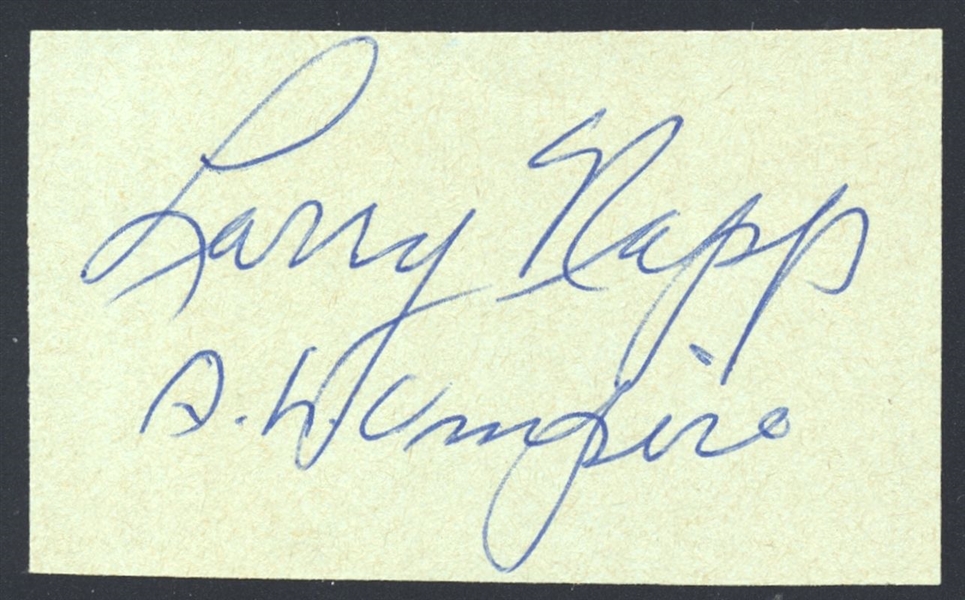 Larry Napp
A.L. Umpire